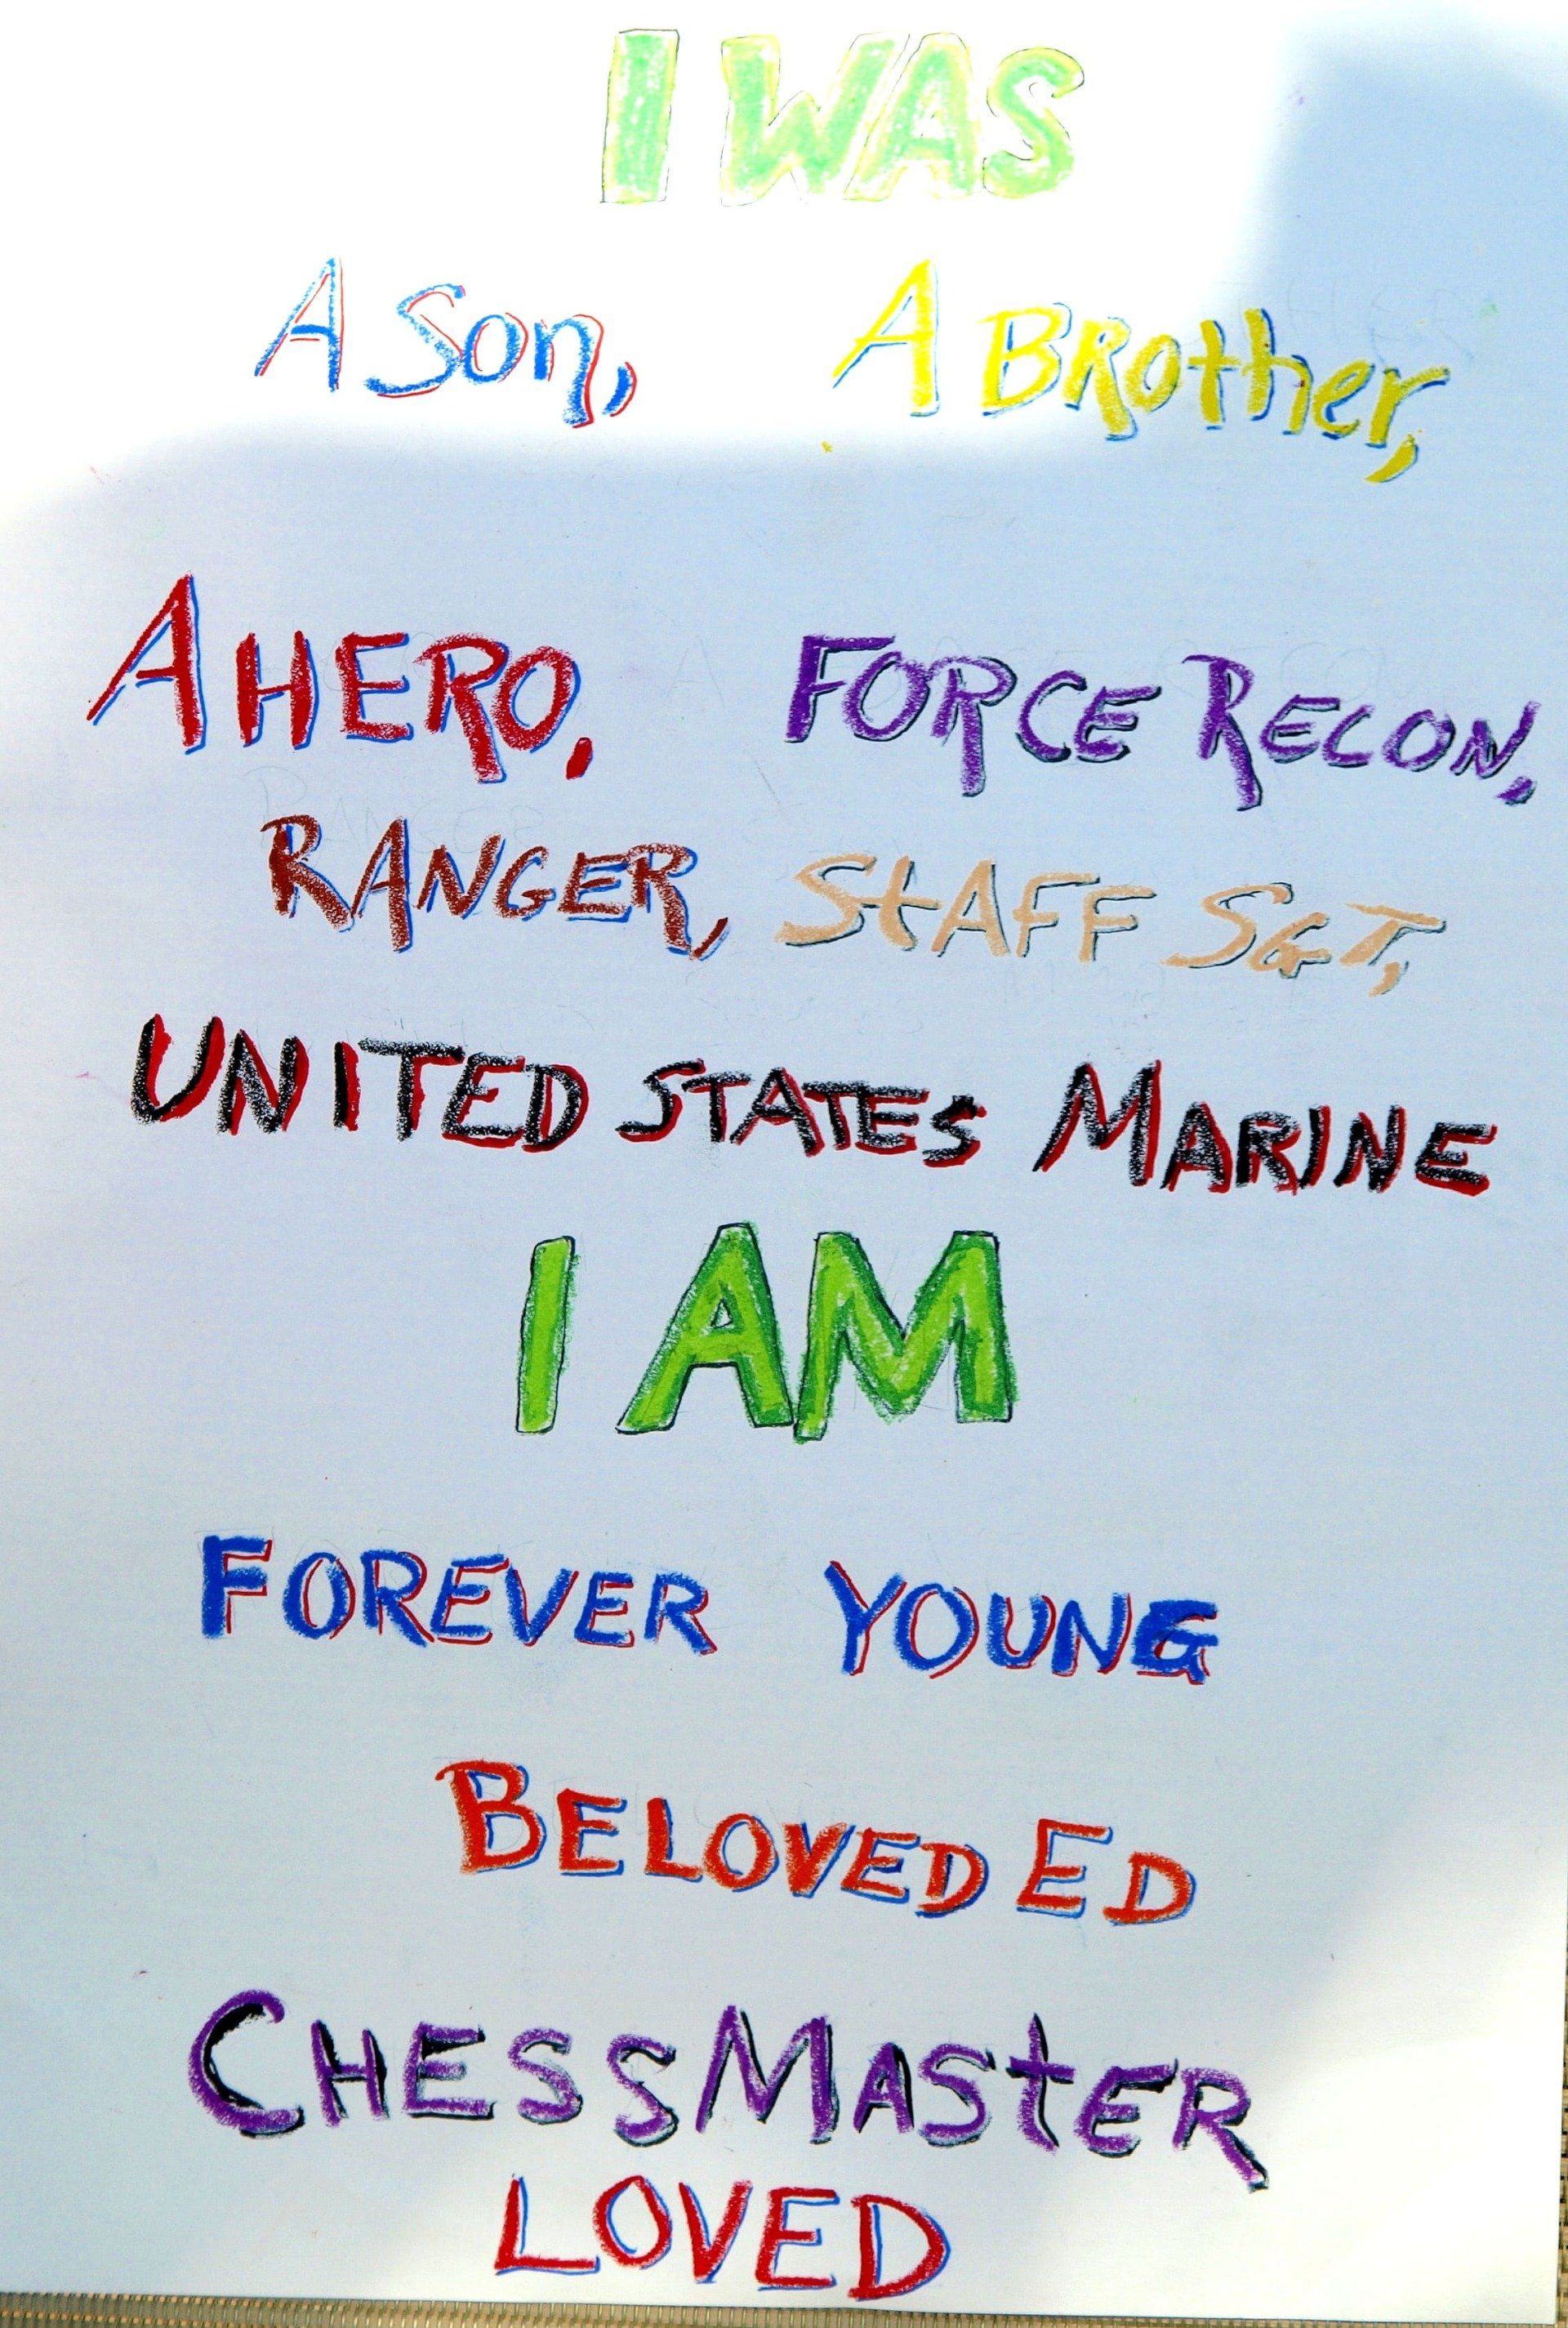 I WAS
A Son, A BRother,
A HERO, FORCE RECON,
RANGER, StAFF SGT,
UNITED STATES MARINE
I AM
FOREVER YOUNG
BELOVED ED
CHESSMAStER
LOVED